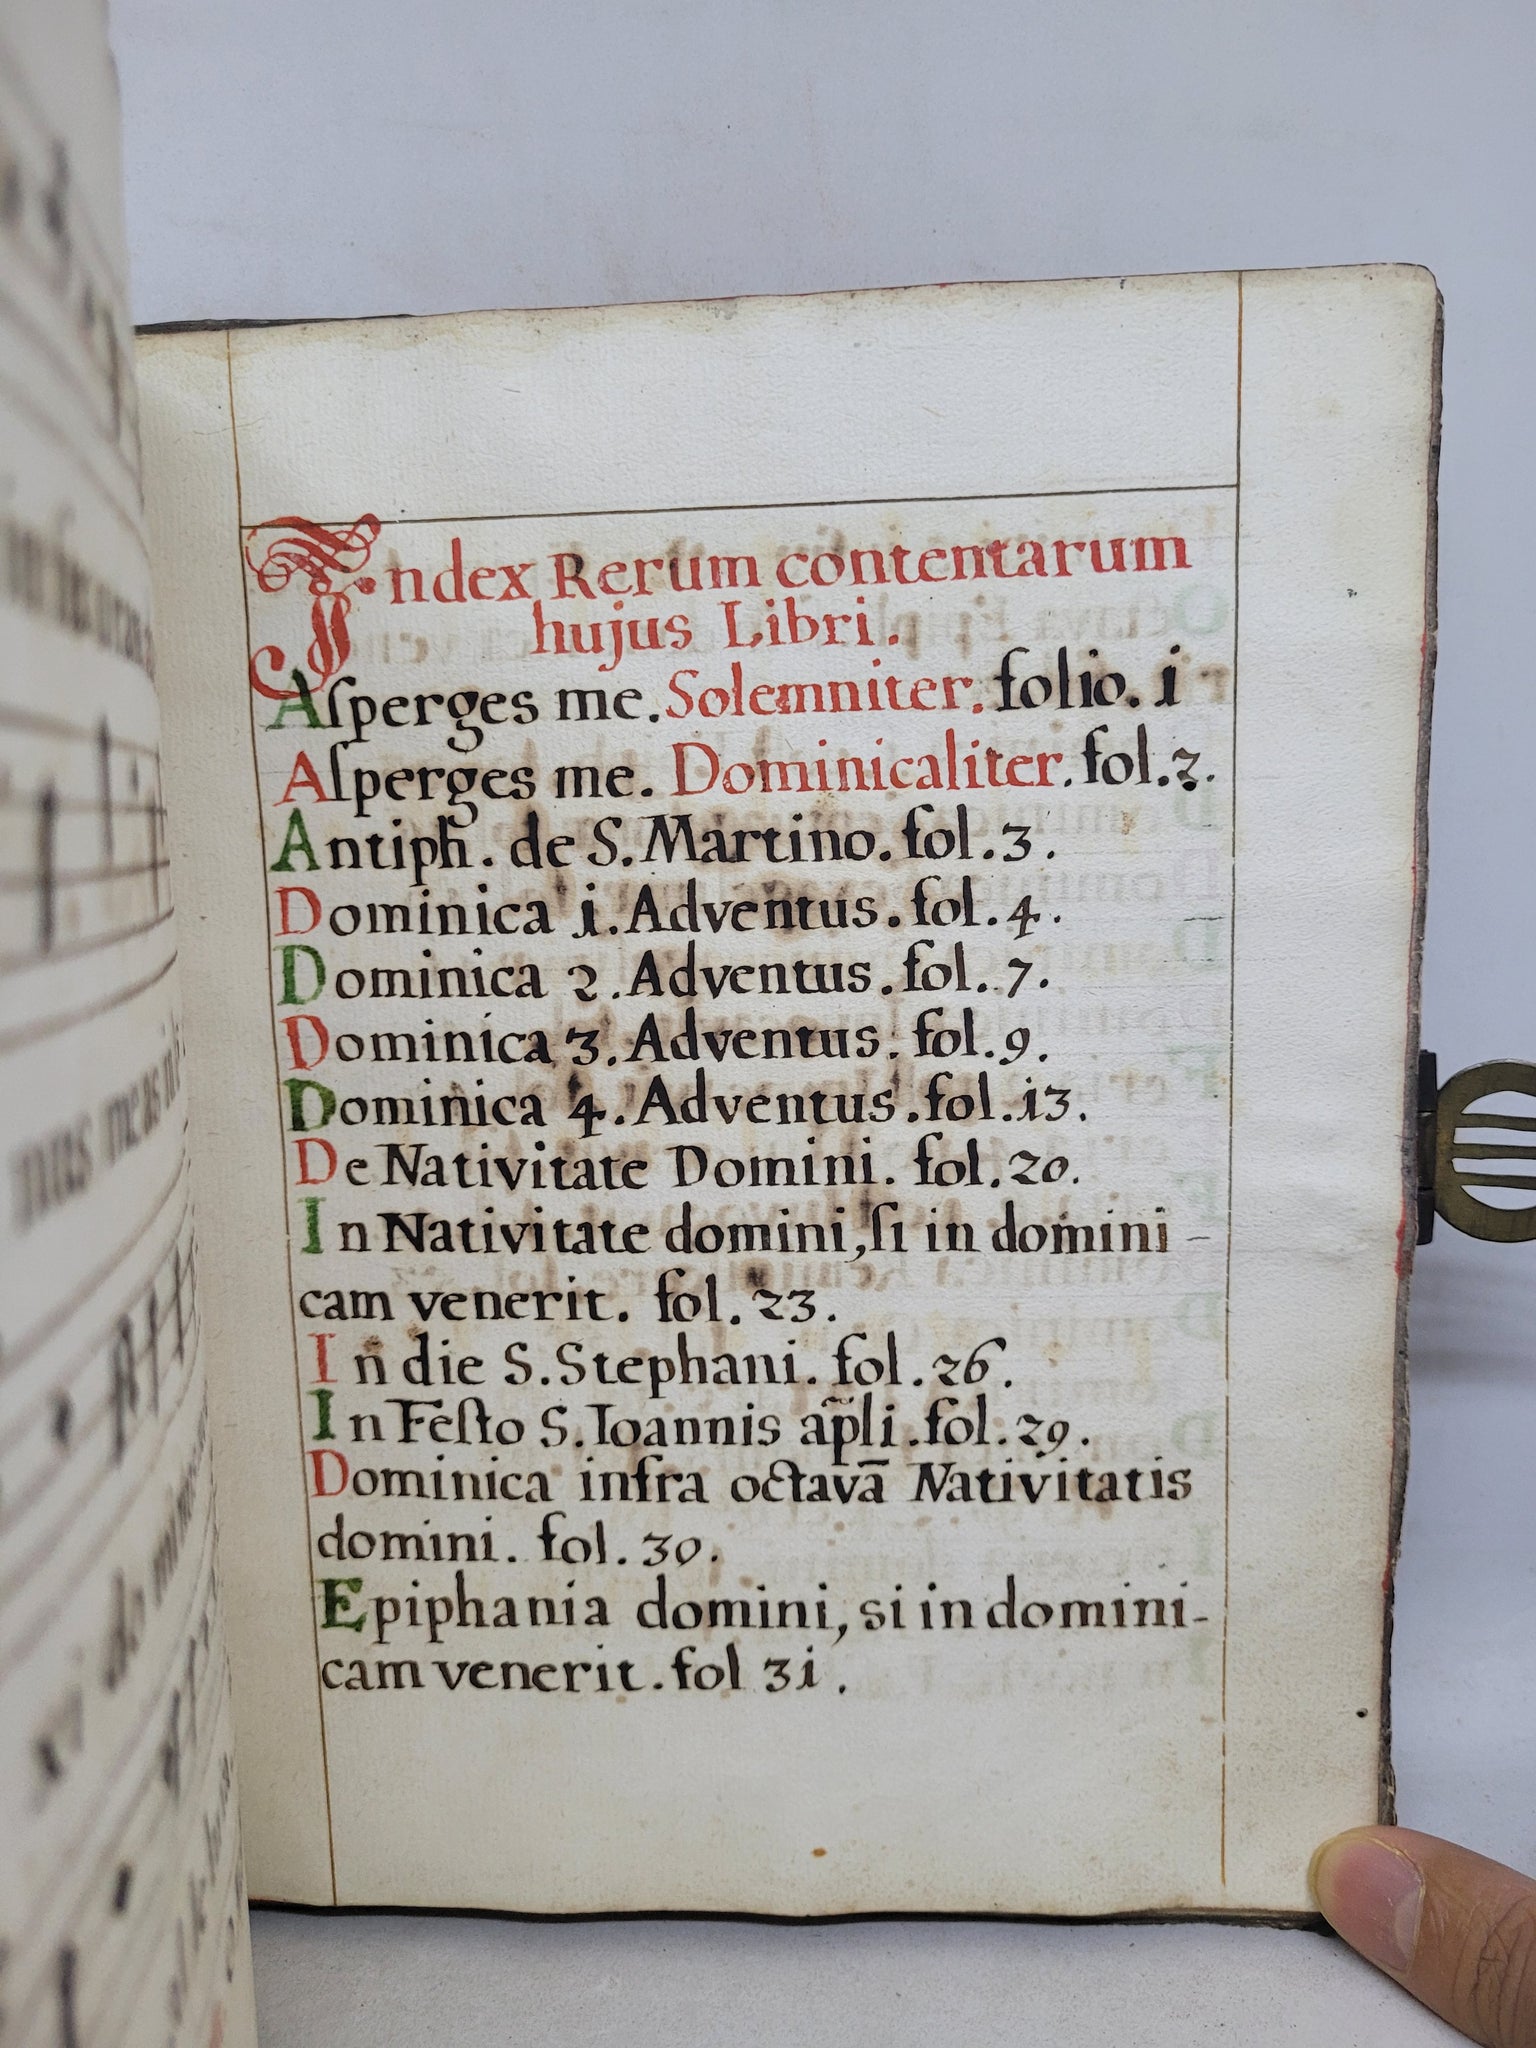 Index Rerum contentarum
hujus Libri.
Aſperges me. Solemniter. folio. i
Aſperges me. Dominicaliter. fol. 2.
Antiph̄. de S. Martino. fol. 3.
Dominica i. Adventus. fol. 4.
Dominica 2. Adventus. fol. 7.
Dominica 3. Adventus. fol. 9.
Dominica 4. Adventus. fol. i3.
De Nativitate Domini. fol. 20.
In Nativitate domini, ſi in domini-
cam venerit. fol. 23.
In die S. Stephani. fol. 26.
In Feſto S. Ioannis ap̃li. fol. 29.
Dominica infra octavā Nativitatis
domini. fol. 30.
Epiphania domini, si in domini-
cam venerit. fol 3i.